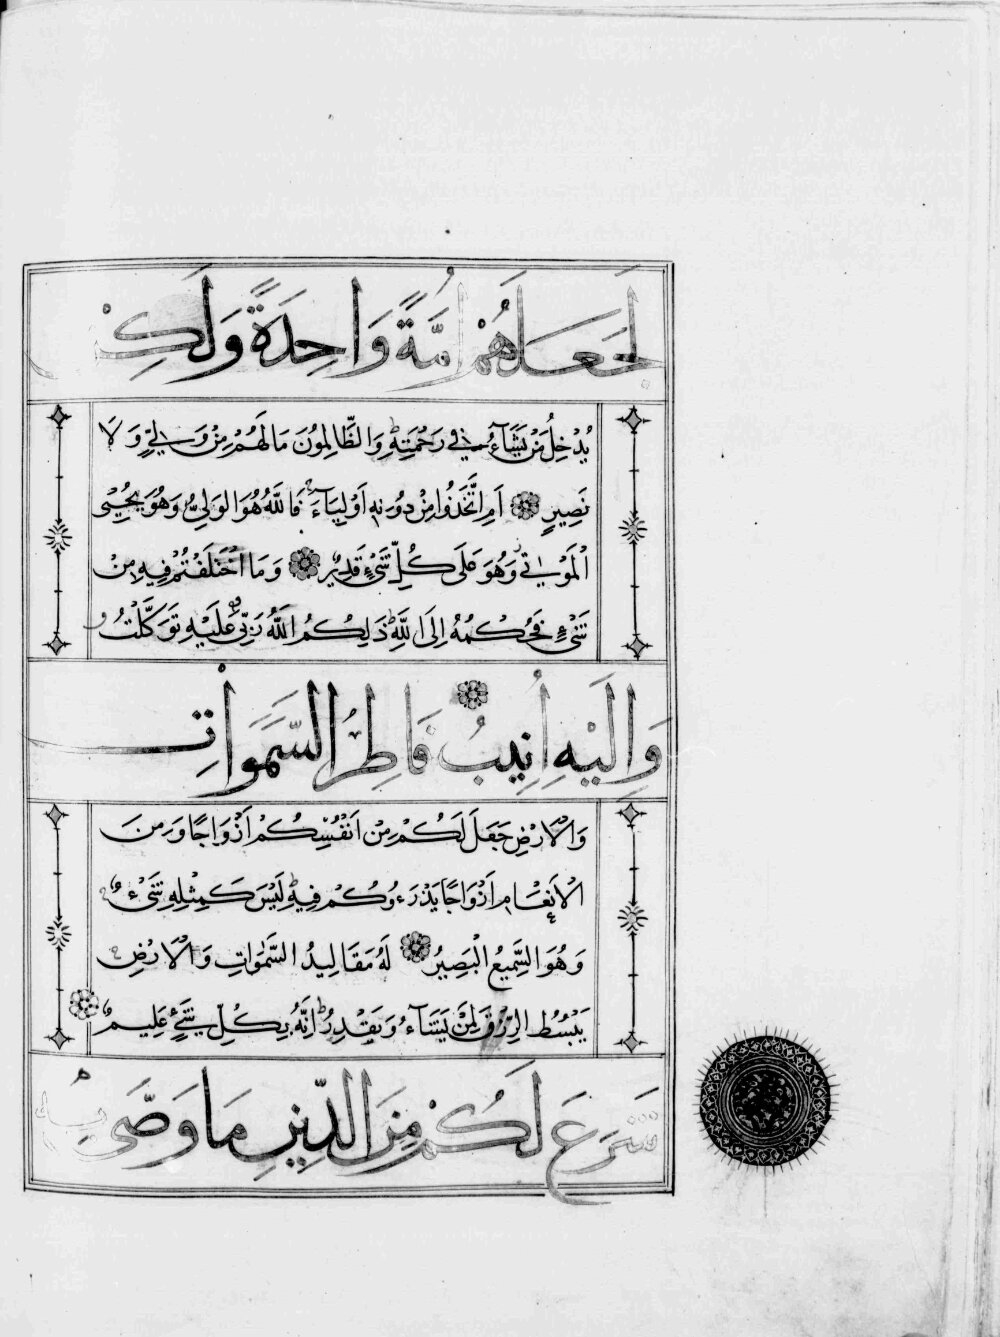 لَجَعَلَهُمْ أُمَّةً وَاحِدَةً وَلَكِنْ
يُدْخِلُ مَنْ يَشَآءُ فِي رَحْمَتِهِ وَالظَّالِمُونَ مَا لَهُمْ مِنْ وَلِيٍّ وَلَا
نَصِيرٍ اَمِ اتَّخَذُوا مِنْ دُونِهِ اَوْلِيَآءَ فَاللَّهُ هُوَ الْوَلِيُّ وَهُوَ يُحْيِي
الْمَوْتَى وَهُوَ عَلَى كُلِّ شَيْءٍ قَدِيرٌ وَمَا اخْتَلَفْتُمْ فِيهِ مِنْ
شَيْءٍ فَحُكْمُهُ اِلَى اللَّهِ ذَلِكُمُ اللَّهُ رَبِّي عَلَيْهِ تَوَكَّلْتُ
وَاِلَيْهِ اُنِيبُ فَاطِرُ السَّمَوَاتِ
وَالْاَرْضِ جَعَلَ لَكُمْ مِنْ اَنْفُسِكُمْ اَزْوَاجًا وَمِنَ
الْاَنْعَامِ اَزْوَاجًا يَذْرَءُوكُمْ فِيهِ لَيْسَ كَمِثْلِهِ شَيْءٌ
وَهُوَ السَّمِيعُ الْبَصِيرُ لَهُ مَقَالِيدُ السَّمَوَاتِ وَالْاَرْضِ
يَبْسُطُ الرِّزْقَ لِمَنْ يَشَآءُ وَيَقْدِرُ اِنَّهُ بِكُلِّ شَيْءٍ عَلِيمٌ
شَرَعَ لَكُمْ مِنَ الدِّينِ مَا وَصَّى بِهِ